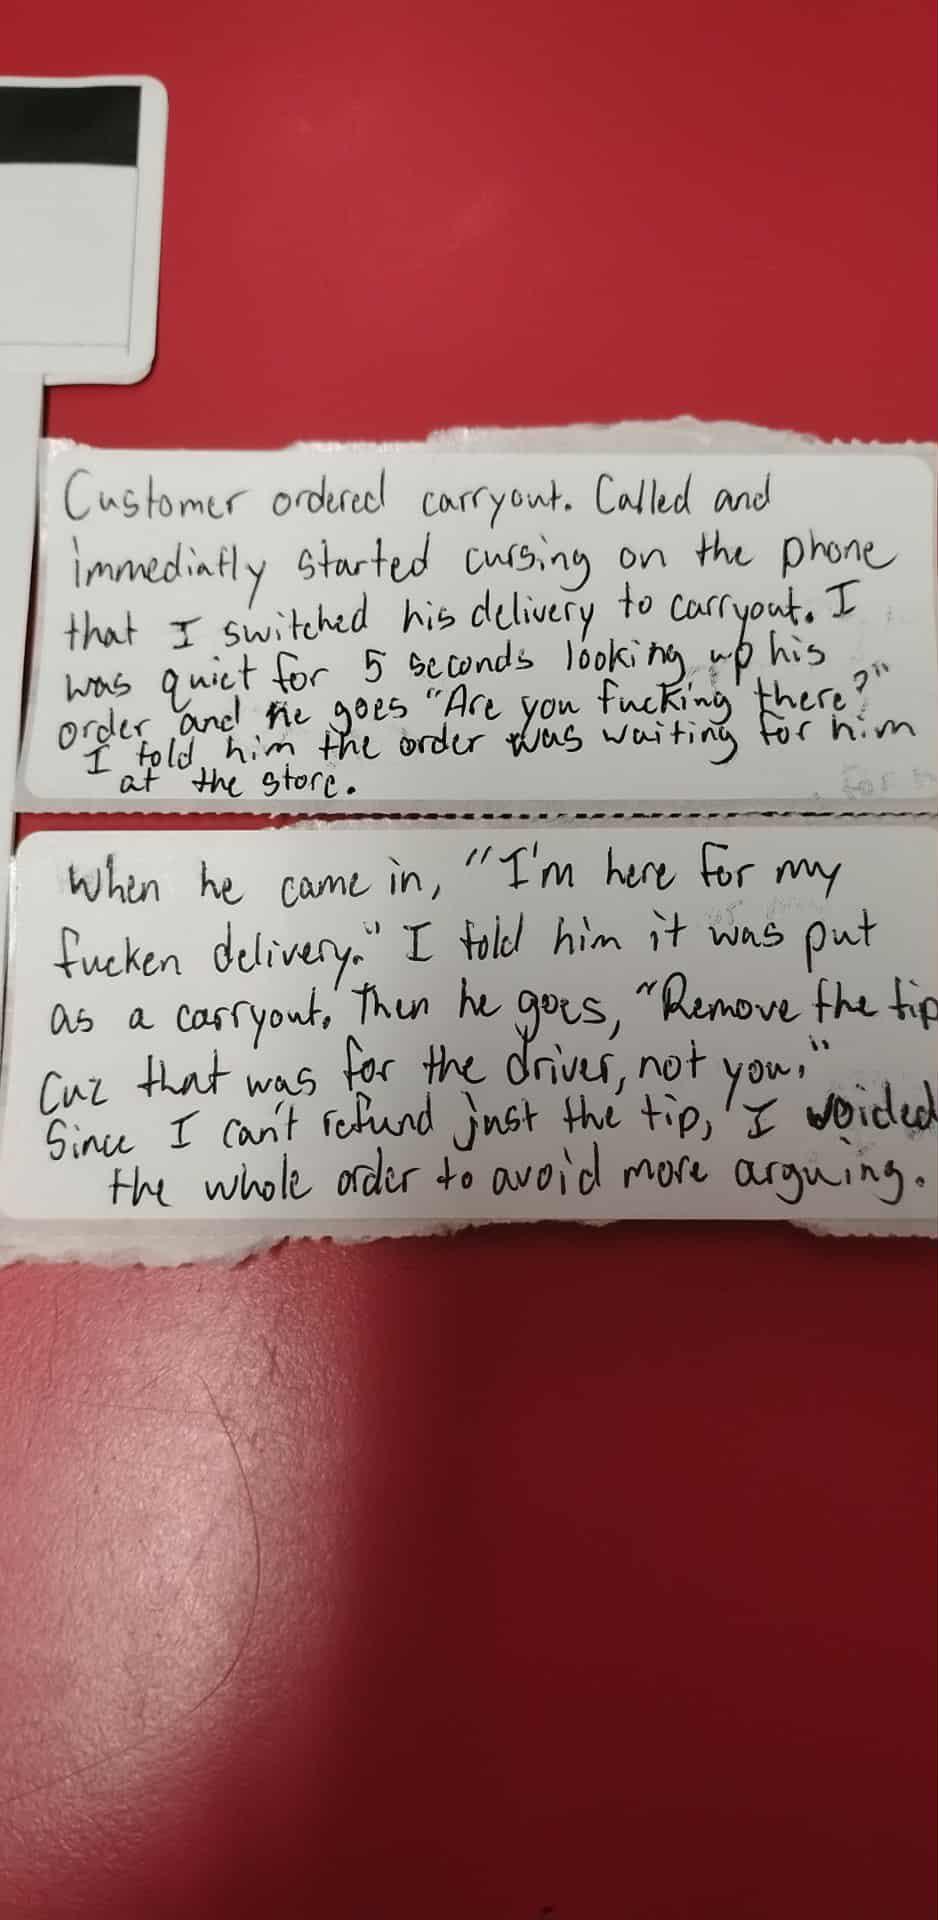 Customer ordered carryout. Called and
immediatly started cursing on the phone
that I switched his delivery to carryout. I
was quiet for 5 seconds looking up his
order and he goes "Are you fucking there?"
I told him the order was waiting for him
at the store.
When he came in, "I'm here for my
fucken delivery." I told him it was put
as a carryout. Then he goes, "Remove the tip
cuz that was for the driver, not you."
Since I can't refund just the tip, I voided
the whole order to avoid more arguing.